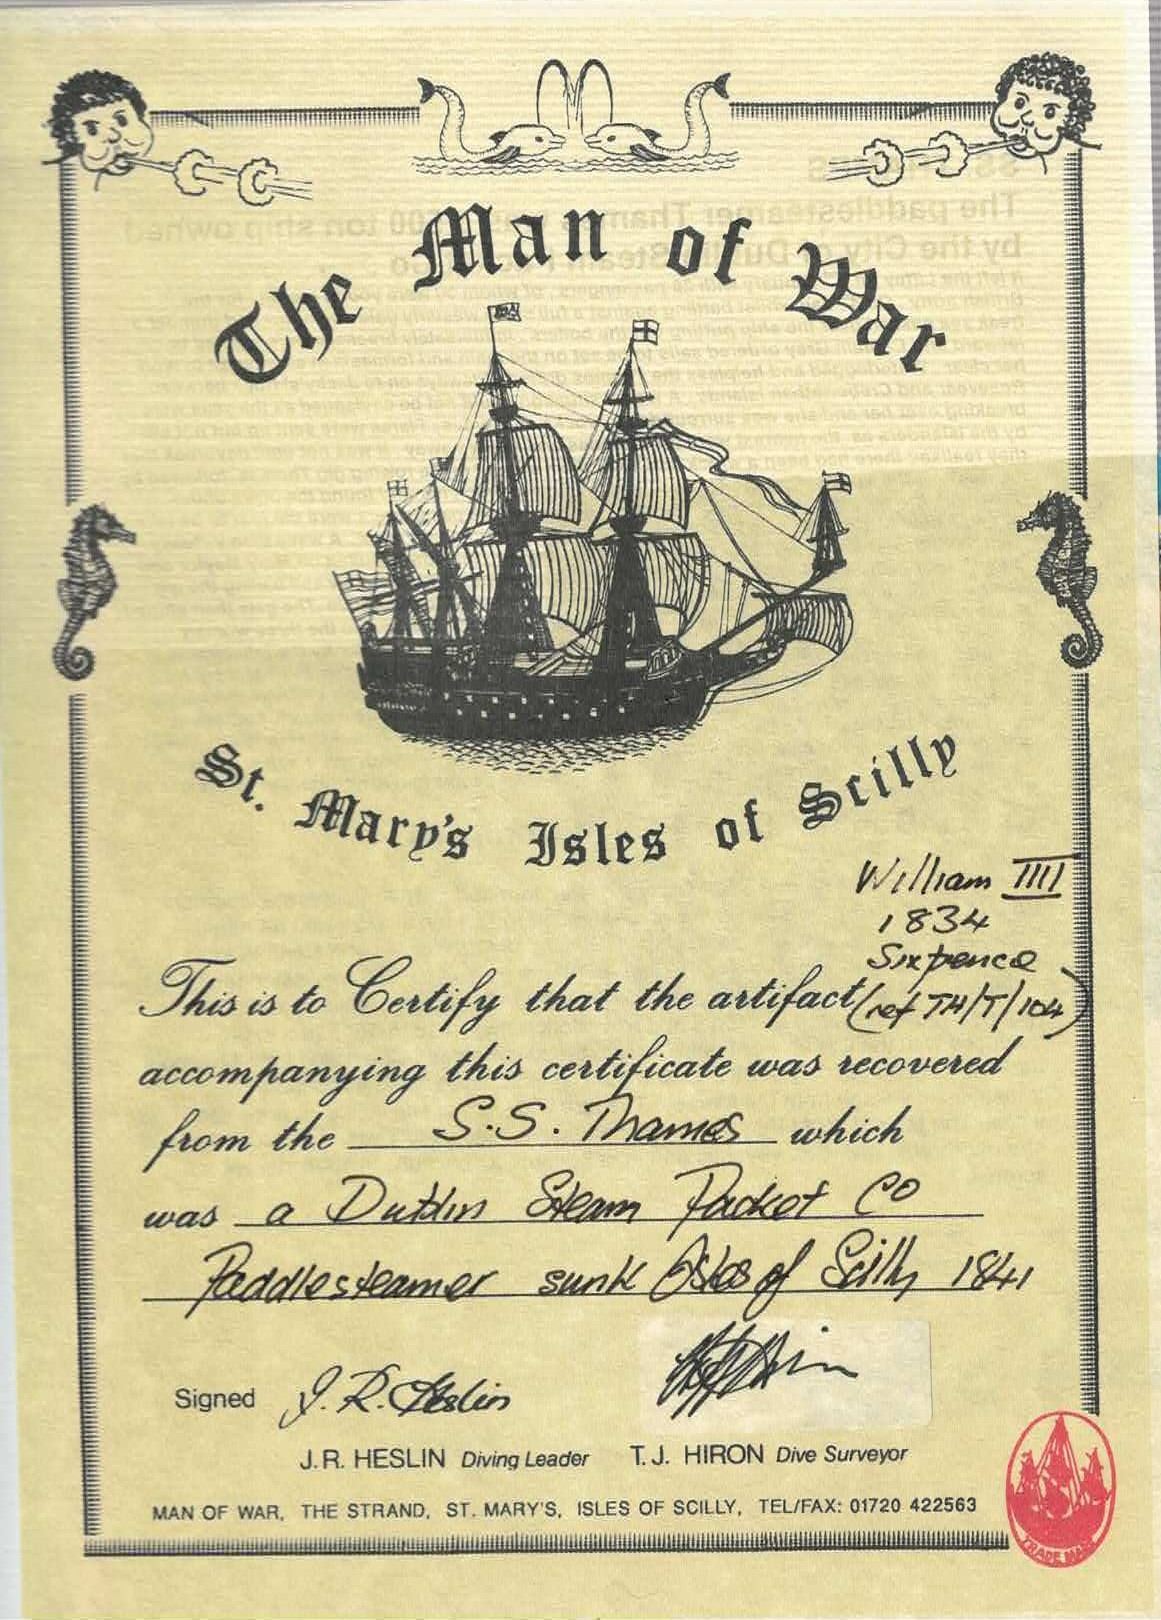 The Man of War
St. Mary's Isles of Scilly
William IIII
1834
Sixpence
This is to Certify that the artifact (ref TH/T/104)
accompanying this certificate was recovered
from the S.S. Thames which
was a Dublin Steam Packet Co
Paddlesteamer sunk Isles of Scilly 1841
Signed J.R. Heslin
J.R. HESLIN Diving Leader T.J. HIRON Dive Surveyor
MAN OF WAR, THE STRAND, ST. MARY'S, ISLES OF SCILLY, TEL/FAX: 01720 422563
TRADE MARK